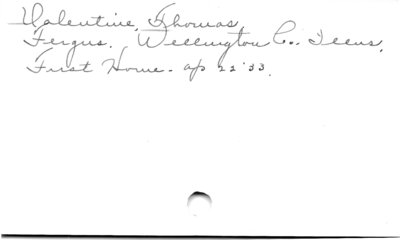 Valentine, Thomas,
Fergus. Wellington Co. Illus.
First Home. ap 22 '33.